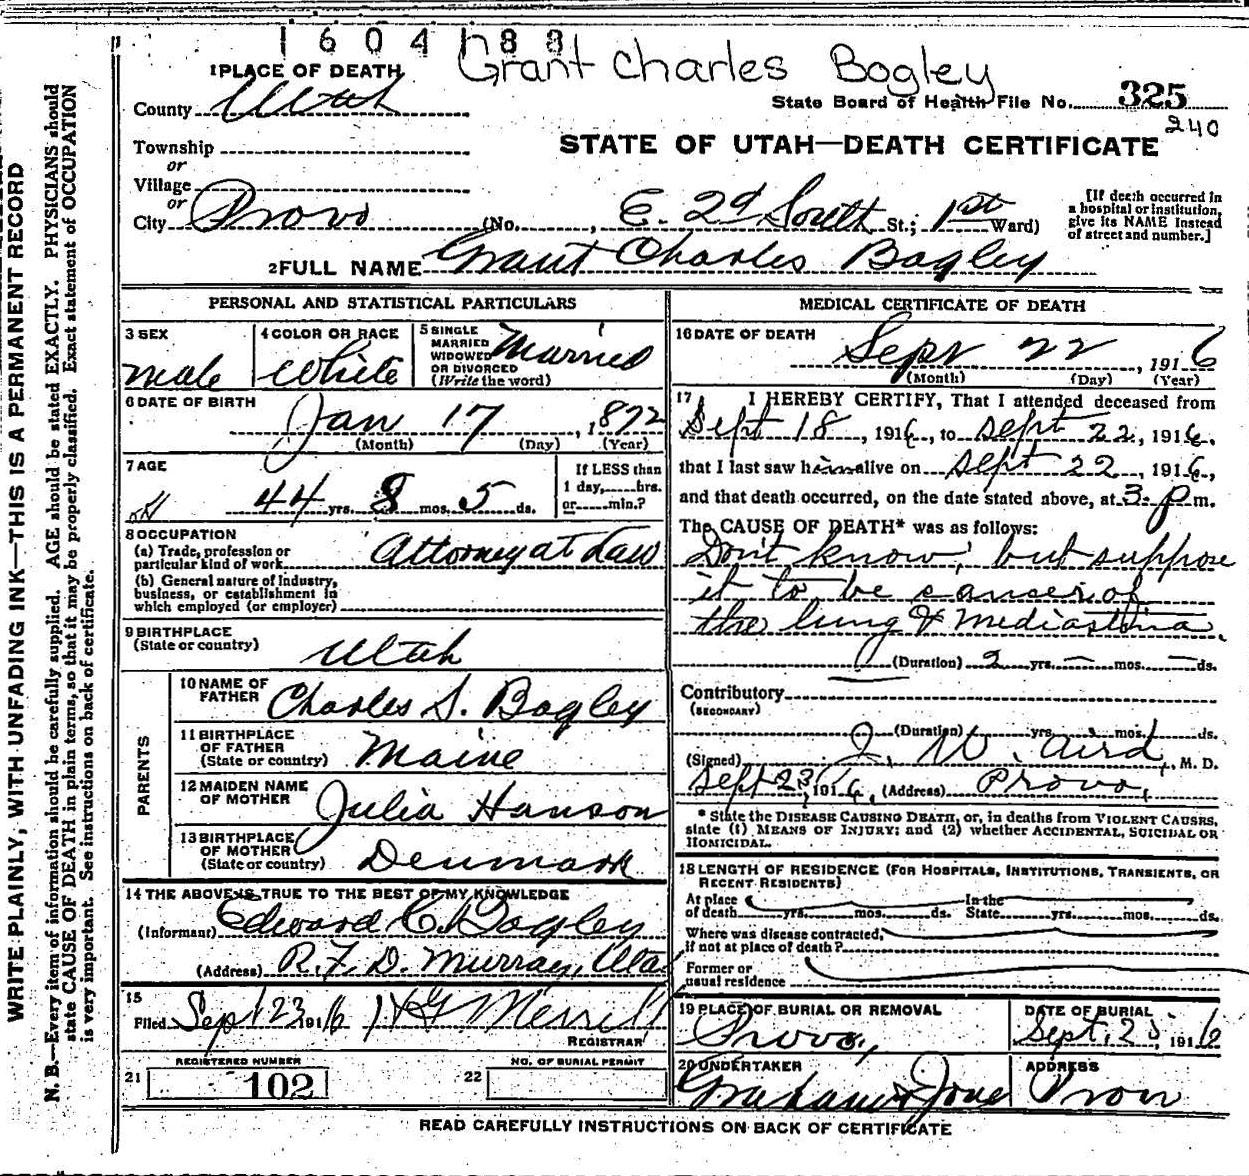 1604188
Grant Charles Bogley
1 PLACE OF DEATH
State Board of Health File No. 325
County Utah
240
STATE OF UTAH—DEATH CERTIFICATE
Township
or
Village
or
City Provo (No. , E. 2d South St.; 1st Ward)
[If death occurred in
a hospital or institution,
give its NAME instead
of street and number.]
2 FULL NAME Grant Charles Bagley
PERSONAL AND STATISTICAL PARTICULARS
3 SEX
male
4 COLOR OR RACE
White
5 SINGLE
MARRIED
WIDOWED
OR DIVORCED
(Write the word)
Married
6 DATE OF BIRTH
Jan 17, 1872
(Month) (Day) (Year)
7 AGE
44 yrs. 8 mos. 5 ds.
If LESS than
1 day,.....hrs.
or.....min.?
8 OCCUPATION
(a) Trade, profession or
particular kind of work Attorney at Law
(b) General nature of Industry,
business, or establishment in
which employed (or employer)
9 BIRTHPLACE
(State or country)
Utah
PARENTS
10 NAME OF
FATHER Charles S. Bagley
11 BIRTHPLACE
OF FATHER
(State or country) Maine
12 MAIDEN NAME
OF MOTHER Julia Hanson
13 BIRTHPLACE
OF MOTHER
(State or country) Denmark
14 THE ABOVE IS TRUE TO THE BEST OF MY KNOWLEDGE
(Informant) Edward C. Bagley
(Address) R.F.D. Murray, Uta
15
Filed Sept 23 1916 Merrill
REGISTRAR
REGISTERED NUMBER
21 102
NO. OF BURIAL PERMIT
22
MEDICAL CERTIFICATE OF DEATH
16 DATE OF DEATH
Sept 22, 1916
(Month) (Day) (Year)
17 I HEREBY CERTIFY, That I attended deceased from
Sept 18, 1916, to Sept 22, 1916,
that I last saw him alive on Sept 22, 1916,
and that death occurred, on the date stated above, at 3 p m.
The CAUSE OF DEATH* was as follows:
Don't know, but suppose
it to be cancer of
the lung & Mediastina
(Duration) 2 yrs. — mos. — ds.
Contributory
(SECONDARY)
(Duration) yrs. mos. ds.
(Signed) J. W. Aird, M. D.
Sept 23, 1916, (Address) Provo,
* State the DISEASE CAUSING DEATH, or, in deaths from VIOLENT CAUSES,
state (1) MEANS OF INJURY; and (2) whether ACCIDENTAL, SUICIDAL OR
HOMICIDAL.
18 LENGTH OF RESIDENCE (FOR HOSPITALS, INSTITUTIONS, TRANSIENTS, OR
RECENT RESIDENTS)
At place In the
of death yrs. mos. ds. State yrs. mos. ds.
Where was disease contracted,
if not at place of death?
Former or
usual residence
19 PLACE OF BURIAL OR REMOVAL
Provo,
DATE OF BURIAL
Sept. 25, 1916
20 UNDERTAKER
Graham & Jone
ADDRESS
Prov
READ CAREFULLY INSTRUCTIONS ON BACK OF CERTIFICATE
WRITE PLAINLY, WITH UNFADING INK—THIS IS A PERMANENT RECORD
N. B.—Every item of information should be carefully supplied. AGE should be stated EXACTLY. PHYSICIANS should
state CAUSE OF DEATH in plain terms, so that it may be properly classified. Exact statement of OCCUPATION
is very important. See instructions on back of certificate.